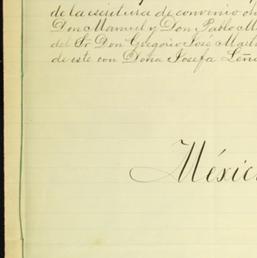 de la escritura de convenio
Don Manuel y Don Pablo
del Sr Don Gregorio José
de este con Doña Josefa
Méxic